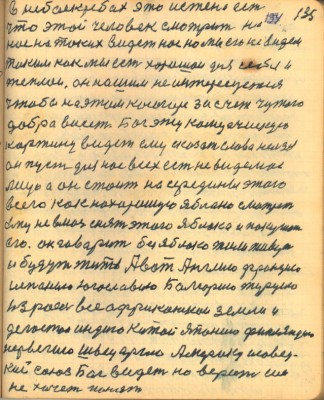 в небоскребах это истено ест
что этой человек смотрит на 135
нас на таких видет нас но мы его не видем
таким как мы ест хорошой для себя и
теплом, он нашим не интересуется
чтобы на этом кого за счет чужого
добра висет. Бог эту
картину видет ему сказат слова нелзя
он пуст для нас всех ест не видемое
лицо а он стоит на середины этого
всего как на хорошую яблоко смотрит
ему не снят этого яблока и покушат
его. он говорит бы яблоко жили живут
и будут жить А вот Англию францию
испанию югославию Болгарию турцию
израсы все африканской земли и
индию Китай Японию финляндию
норвегию швецарию Америку совец-
кий союз Бог видет но верит им
не хочет понят